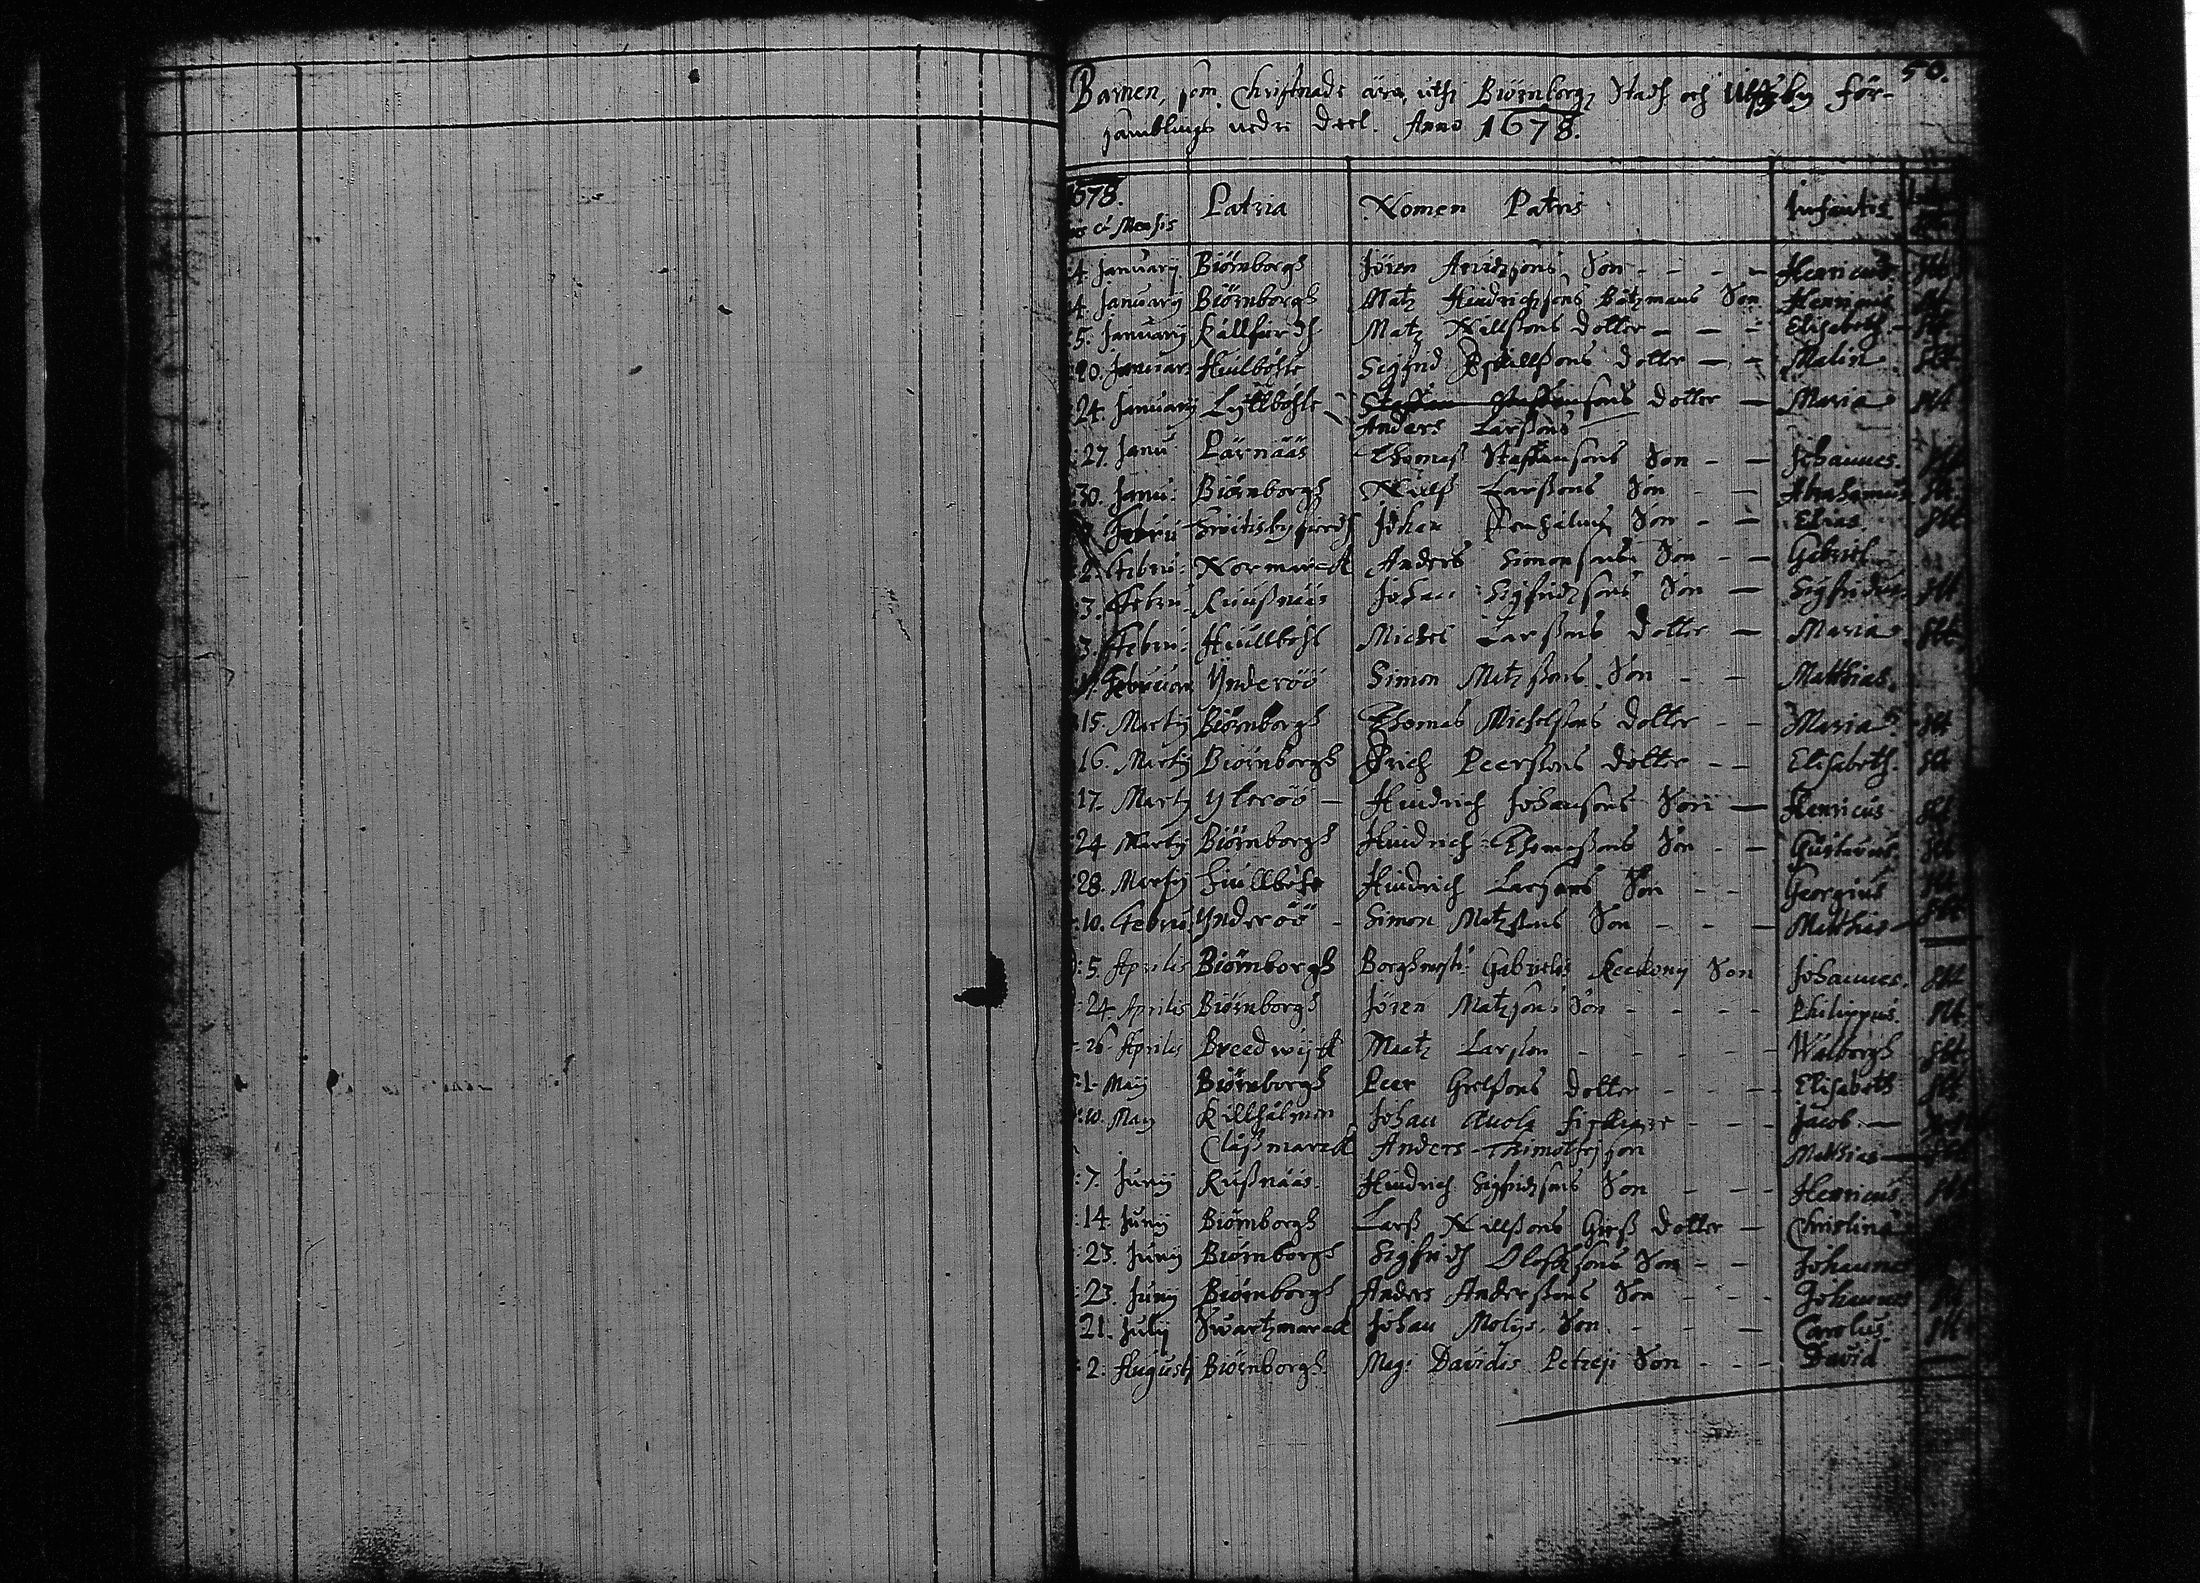 50.
Barnen, som Christnade äro, uthi Biörnborgz Stadh och Ulfzby För-
samblings nedre deel. Anno 1678.
1678. Patria Nomen Patris Infantis
et Mensis
4. January Biörnborgh Jören Arvidzsons Son - - - Henricus.
4. January Biörnborgh Matz Hindrichzsons Båtzmans Son Henricus
5. January Källfiärdh Matz Nillsons dotter - - - Elisabeth
20. Januari Hiulböhle Sigfrid Eskillsons dotter - - Malin
24. January Lyttböhle Staffan Staffansons dotter - Maria
Anders Larssons
27. Janu Pärnääs Thomas Staffansons Son - - Johannes.
30. Janu: Biörnborgh Nills Larssons Son - - Abrahamus
Febru Johan Son - - Elias.
2. Febru: Normarck Anders Simonsons Son - - Gabriel
3. Febru: Ruussnääs Johan Sigfridzsons Son - Sigfridus
3. Febru: Hiullböhl Michel Larssons dotter - Maria
Februari Ynderöö Simon Matzsons Son - - Matthias.
15. Martij Biörnborgh Thomas Michelssons dotter - - Maria
16. Martij Biörnborgh Erich Peerssons dotter - - Elisabeth.
17. Martij Yteröö - Hindrich Johansons Son - Henricus
24. Martij Biörnborgh Hindrich Thomassons Son - - Gustavus.
28. Martij Hiullböhle Hindrich Larssons Son - - Georgius
10. Febru: Ynderöö - Simon Matzsons Son - - - Matthias
5. Aprilis Biörnborgh Borghmest: Gabrielis Keckonij Son Johannes.
24. Aprilis Biörnborgh Jören Matzsons Son - - - - Philippus.
26. Aprilis Breedwijck Maatz Larsson - - - - - Walborgh
1. Maij Biörnborgh Peer Grelssons dotter - - - Elisabeth
10. Maij Killhålmen Johan - - - Jacob -
Clässmarck Anders Thimothejson Matthias -
7. Junij Russnääs. Hindrich Sigfridzsons Son - - - Henricus.
14. Junij Biörnborgh Larss Nillssons Gress dotter - Christina
23. Junij Biörnborgh Sigfridh Oloffzsons Son - - Johannes
23. Junij Biörnborgh Anders Anderssons Son - - - Johannes
21. Julij Swartzmarck Johan Molijs Son - - - Carolus.
2. Augusti Biörnborgh Mag: Davidis Petreji Son - - - David